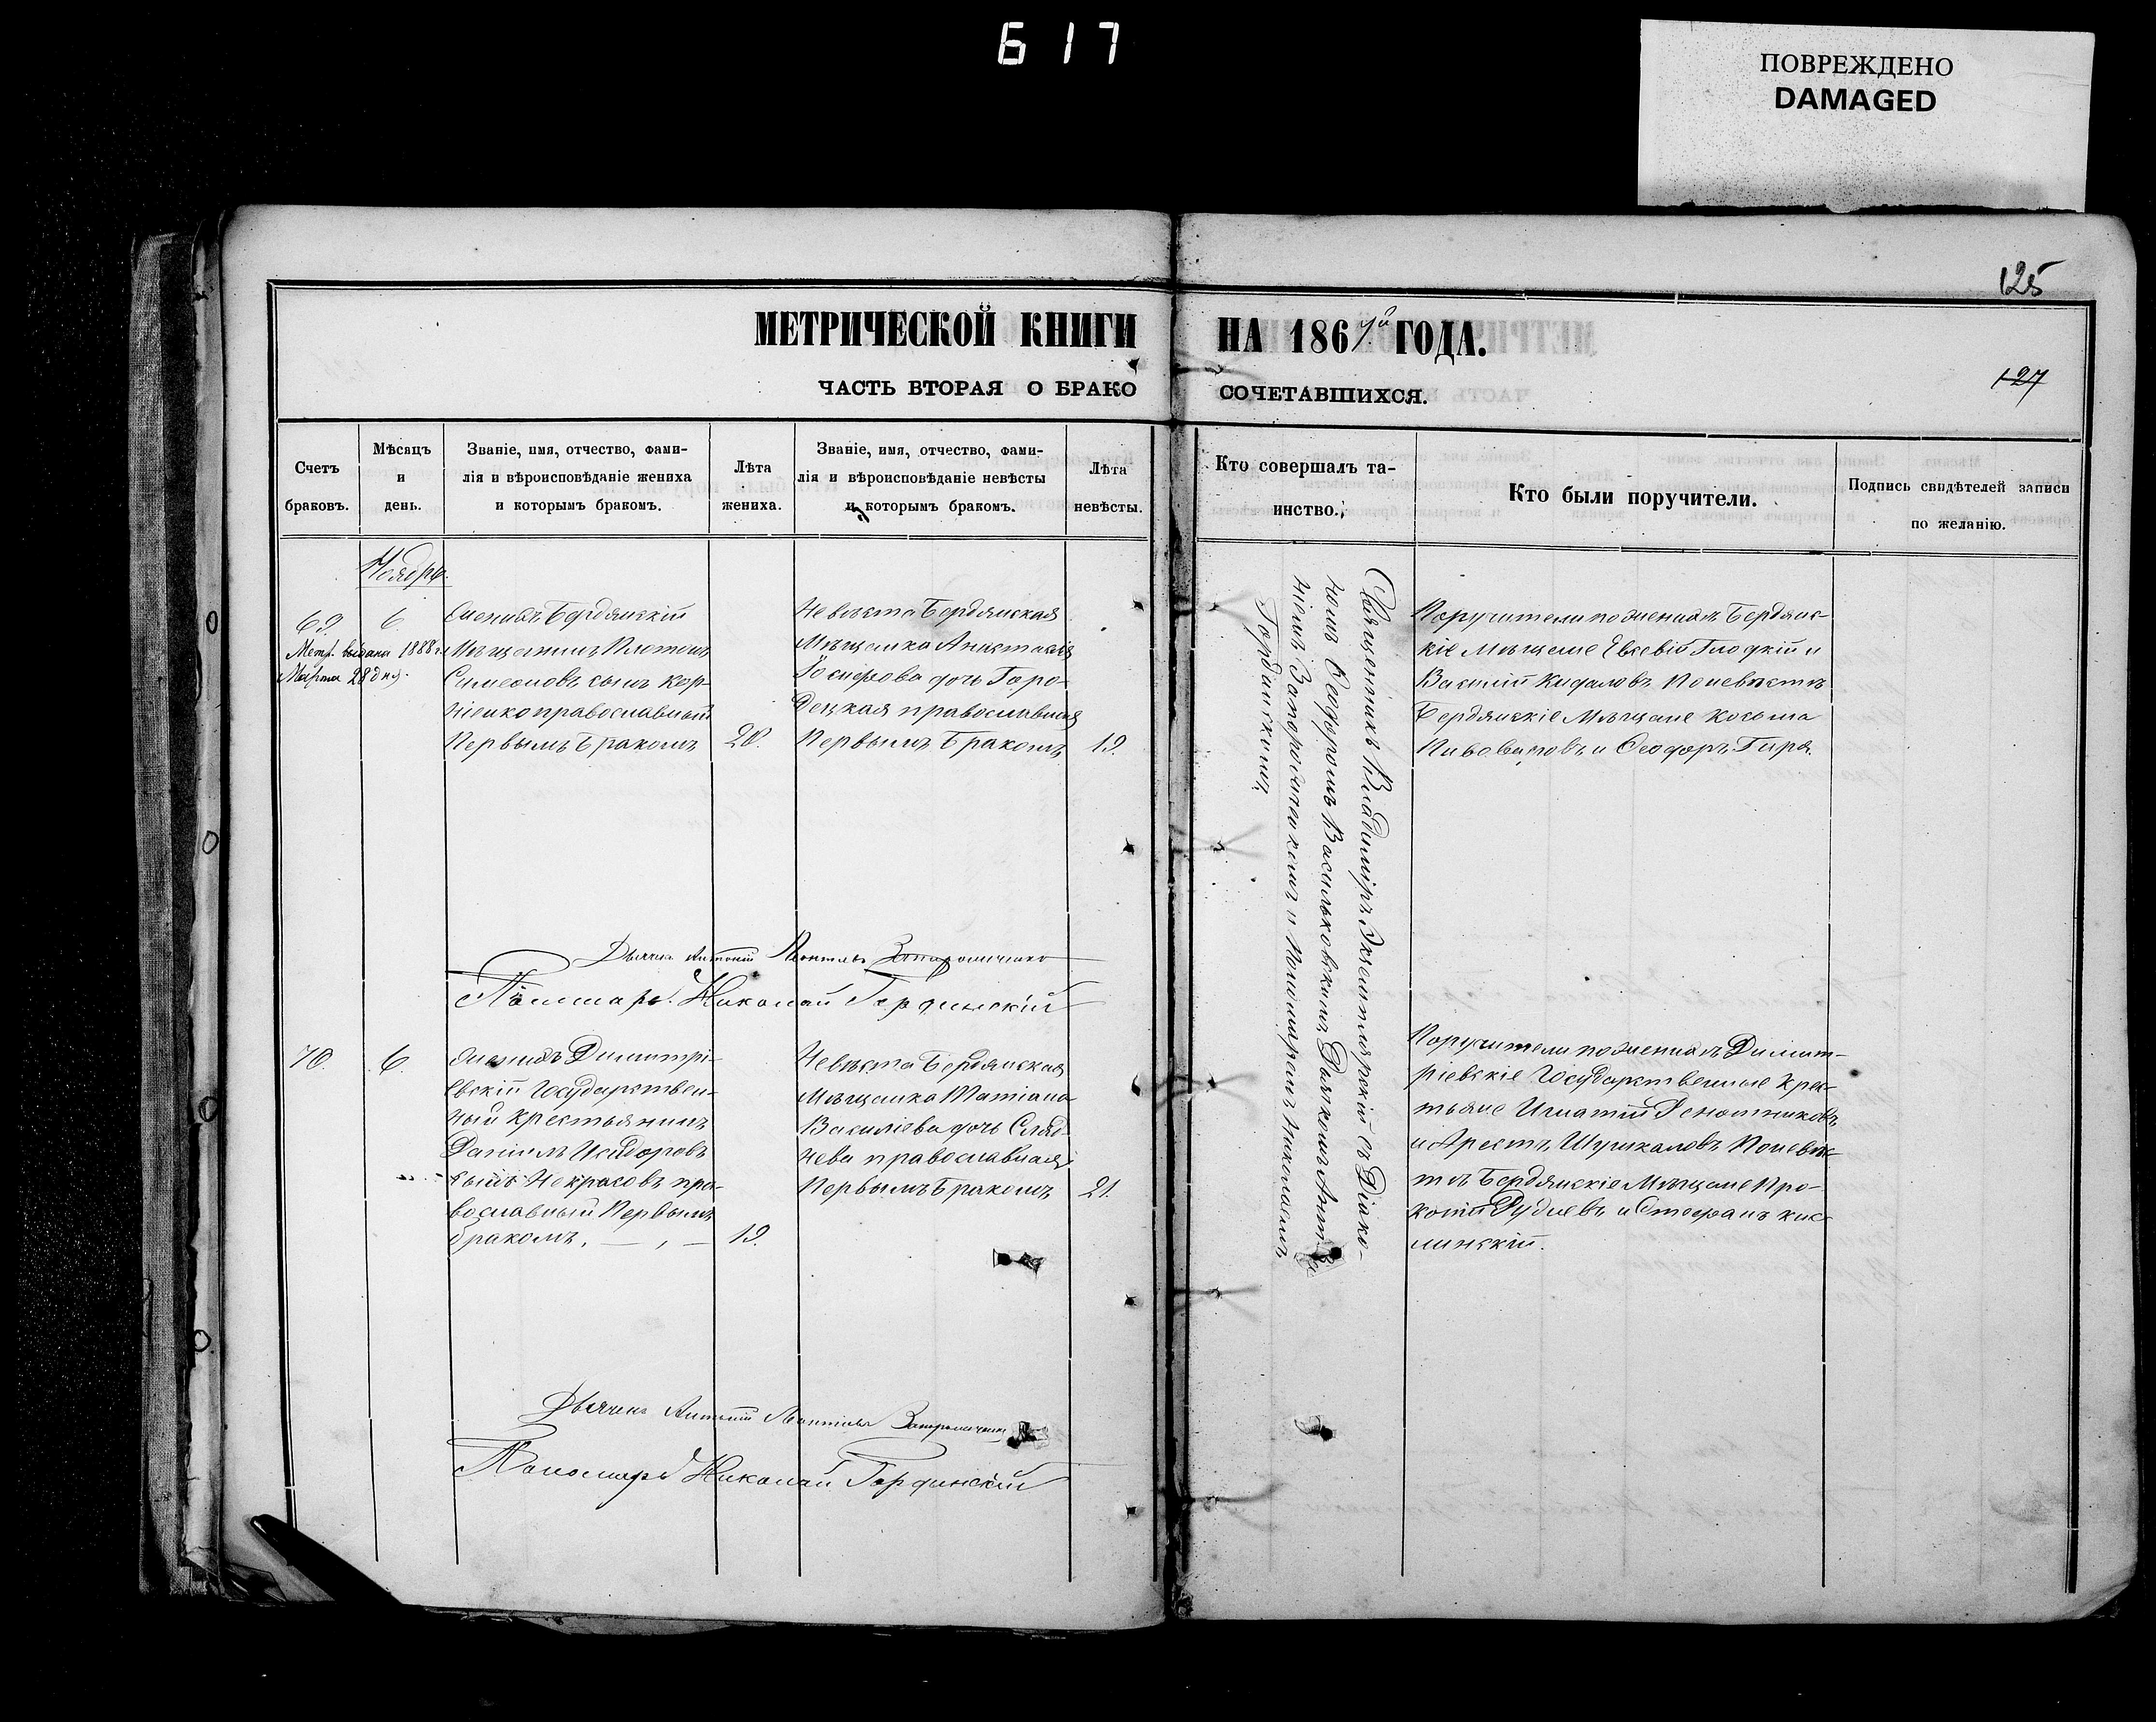 617
ПОВРЕЖДЕНО
DAMAGED
125
МЕТРИЧЕСКОЙ КНИГИ НА 186 ГОДА.
127
ЧАСТЬ ВТОРАЯ О БРАКО СОЧЕТАВШИХСЯ.
Счетъ
браковъ.
Мѣсяцъ
и
день.
Званіе, имя, отчество, фами-
лія и вѣроисповѣданіе жениха
и которымъ бракомъ.
Лѣта
жениха.
Званіе, имя, отчество, фами-
лія и вѣроисповѣданіе невѣсты
и которымъ бракомъ.
Лѣта
невѣсты.
Кто совершалъ та-
инство.
Кто были поручители.
Подпись свидѣтелей записи
по желанію.
Ноябрь.
69.
6.
Метр. выдана 1888 г.
Марта 28 дня.
Женихъ Бердянскій
Мѣщанинъ Платонъ
Симеоновъ сынъ Кор-
ніенко православный
Первымъ Бракомъ
20.
Невѣста Бердянская
Мѣщанка Анастасія
Іосифова дочь Горо-
децкая православная
Первымъ Бракомъ
19.
Священникъ Владиміръ Экземплярскій съ Діако-
номъ Феодоромъ Васильковскимъ Дьячкомъ Анто-
ніемъ Запорожченкомъ и Пономаремъ Николаемъ
Гордынскимъ.
Поручители по женихѣ Бердянс-
кіе Мѣщане Евсевій Глоцкій и
Василій Кидаловъ По невѣстѣ
Бердянскіе Мѣщане Косьма
Пивоваровъ и Феодоръ Гиря.
Дьячекъ Антоній
Пономарь Николай Гордынскій
70.
6.
Женихъ Димитрі-
евскій Государствен-
ный Крестьянинъ
Даніилъ Исидоровъ
сынъ Некрасовъ пра-
вославный Первымъ
бракомъ.
19.
Невѣста Бердянская
Мѣщанка Татіана
Василіева дочь
православная
Первымъ Бракомъ
21.
Поручители по женихѣ Димит-
ріевскіе Государственные Крес-
тьяне Игнатій
и Шушкаловъ По невѣс-
тѣ Бердянскіе Мѣщане Про-
копій Рудневъ и Стефанъ Кис-
линскій.
Дьячекъ Антоній
Пономарь Николай Гордынскій